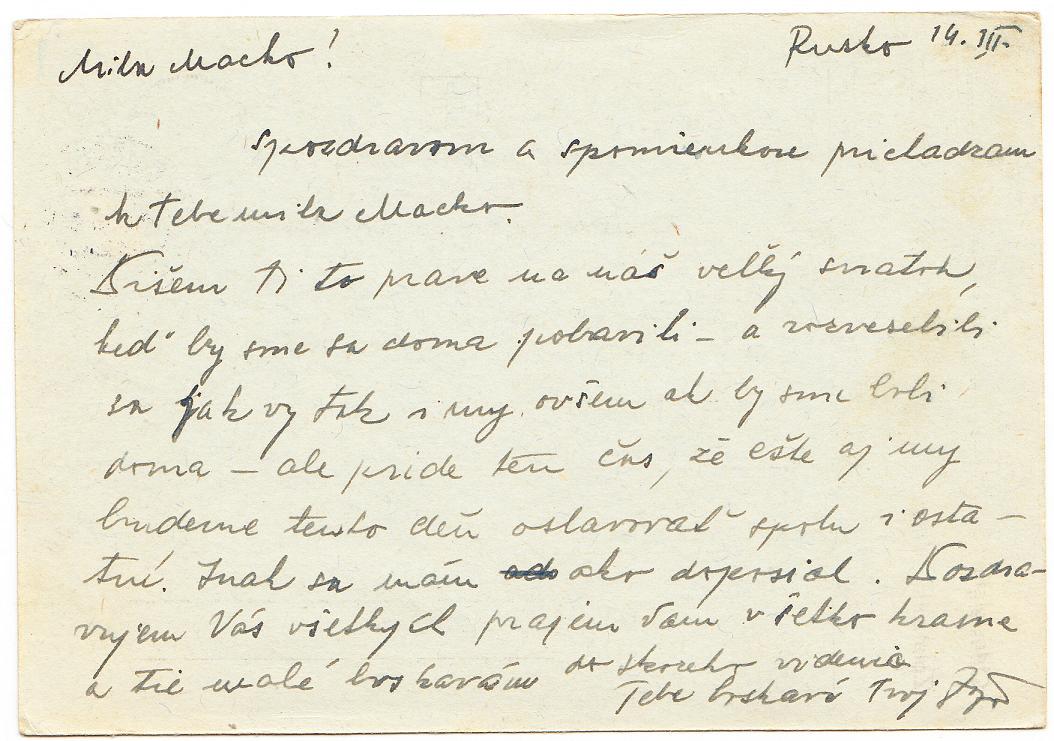 Mila Macko!
Rusko 14. III.
S pozdravom a spomienkou prichadzam
k Tebe mila Macko.
Pišem Ti to prave na náš veľký sviatok,
keď by sme sa doma pobavili – a rozveselili
sa jak vy tak i my ovšem ak by sme boli
doma – ale pride ten čas, že ešte aj my
budeme tento deň oslavovať spolu i osta-
tní. Inak sa mám ako doposial. Pozdra-
vujem Vás všetkych prajem Vam všetko krasne
a tie malé boskavám do skoreho videnia
Tebe boskavi Tvoj